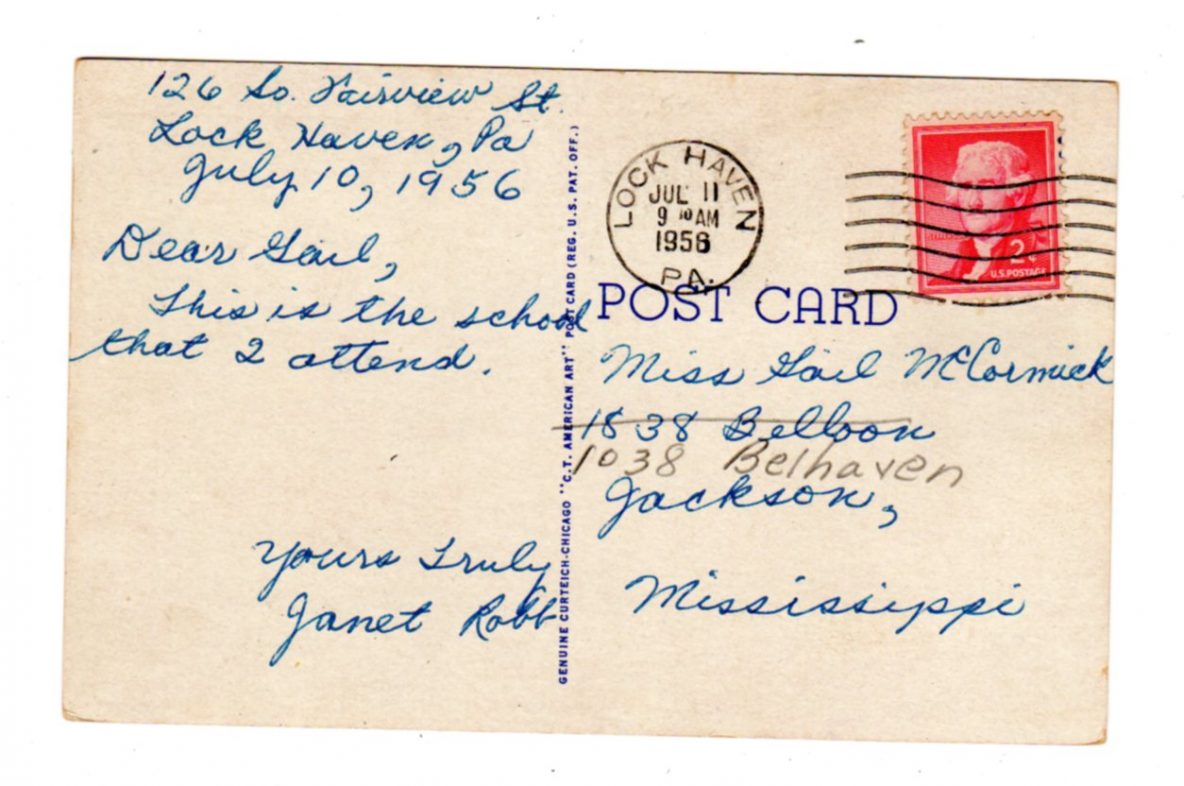 126 So. Fairview St.
Lock Haven, Pa
July 10, 1956
Dear Gail,
This is the school
that I attend.
Yours Truly
Janet Robb
GENUINE CURTEICH-CHICAGO "C.T. AMERICAN ART" POST CARD (REG. U.S. PAT. OFF.)
LOCK HAVEN
JUL 11
9 AM
1956
PA.
2¢
U.S. POSTAGE
POST CARD
Miss Gail McCormick
1838 Belloon
1038 Belhaven
Jackson,
Mississippi